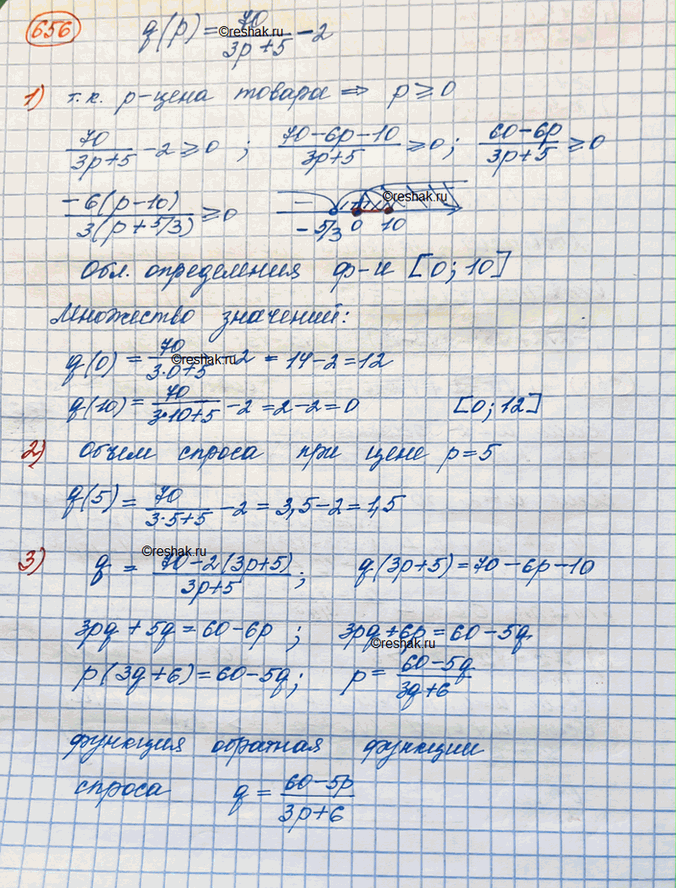 656 q(p) = 70/(3p+5) - 2
©reshak.ru
1) т.к. p-цена товара ⇒ p ≥ 0
70/(3p+5) - 2 ≥ 0 ; (70-6p-10)/(3p+5) ≥ 0 ; (60-6p)/(3p+5) ≥ 0
-6(p-10)/3(p+5/3) ≥ 0 - -5/3 0 10
©reshak.ru
Обл. определения ф-и [0; 10]
Множество значений:
q(0) = 70/(3·0+5) - 2 = 14-2 = 12
©reshak.ru
q(10) = 70/(3·10+5) - 2 = 2-2 = 0 [0; 12]
2) Объем спроса при цене p = 5
q(5) = 70/(3·5+5) - 2 = 3,5-2 = 1,5
©reshak.ru
3) q = (70-2(3p+5))/(3p+5) ; q(3p+5) = 70-6p-10
3pq + 5q = 60-6p ; 3pq + 6p = 60-5q
©reshak.ru
p(3q+6) = 60-5q ; p = (60-5q)/(3q+6)
функция обратная функции
спроса q = (60-5p)/(3p+6)